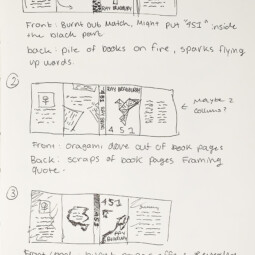 RAY BRADBURY
Front: Burnt out Match, Might put "451" inside
the black part.
back: pile of books on fire, sparks flying
up words.
2
RAY BRADBURY
451
Maybe 2
colums?
Front: oragami dove out of book pages
Back: scraps of book pages Framing
quote.
3
451
RAY